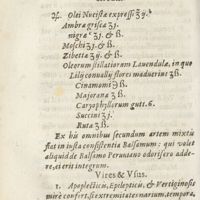 ℞. Olei Nucistæ expressi ʒ ij.
Ambræ griseæ ʒj.
nigræ ʒj. & ß.
Moschi ʒj. & ß.
Zibettæ ʒij. & ß.
Oleorum stillatiorum Lavendulæ, in quo
Lilij convalliũ flores maduerint ʒß.
Cinamomi ℈ß.
Majoranæ ʒ ß.
Caryophyllorum gutt. 6.
Succini ʒj.
Rutæ ʒ ß.
Ex his omnibus secundum artem mixtis
fiat in justa consistentia Balsamum: qui volet
aliquid de Balsamo Peruviano odorifero adde-
re, ei erit integrum.
Vires & Usus.
1. Apoplecticis, Epilepticis, & Vertiginosis
mirè confert, si extremitates narium, tempora,